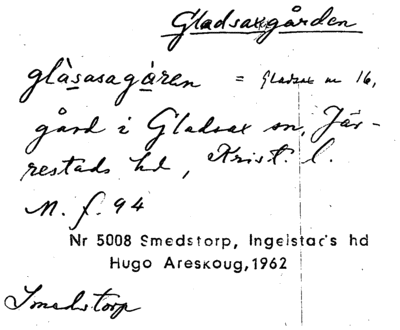 Gladsaxgården
glàsasagàren = Gladsax nr 16,
gård i Gladsax sn, Jär-
restads hd, Krist. l.
M. f. 94
Nr 5008 Smedstorp, Ingelstad's hd
Hugo Areskoug, 1962
Smedstorp